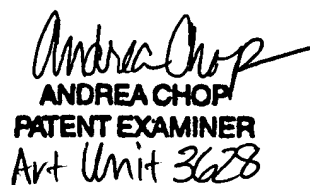 Andrea Chop
ANDREA CHOP
PATENT EXAMINER
Art Unit 3628